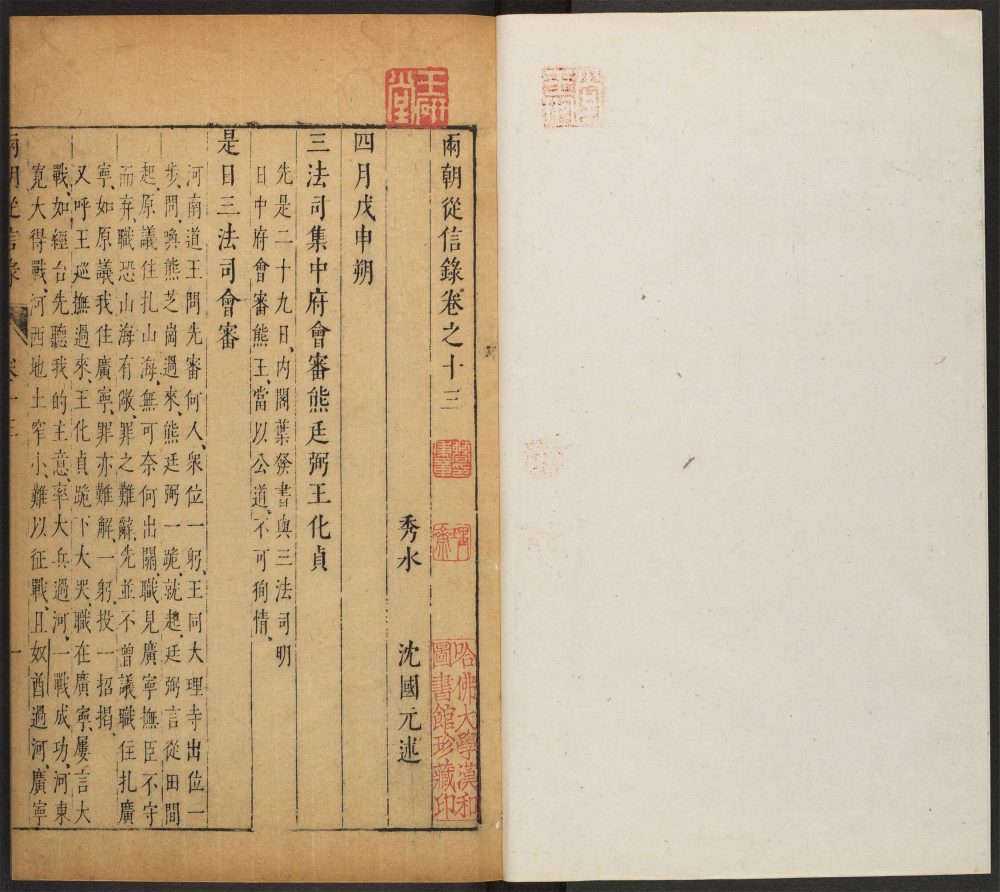 兩朝從信錄卷之十三
秀水 沈國元述
四月戊申朔
三法司集中府會審熊廷弼王化貞
先是二十九日、內閣葉發書與三法司明
日中府會審熊王、當以公道、不可狥情、
是日三法司會審
河南道王問先審何人、衆位一躬、王同大理寺出位一
步、問、喚熊芝崗過來、熊廷弼一跪、就起、廷弼言從田間
起、原議住扎山海、無可奈何出關、職見廣寧撫臣不守
而弃、職恐山海有儆、罪之難辭、先並不曾議職住扎廣
寧、如原議我住廣寧、罪亦難解、一躬、投一招揭、
又呼王巡撫過來、王化貞跪下大哭、職在廣寧、屢言大
戰、如經台先聽我的主意、率大兵過河、一戰成功、河東
寬大得戰、河西地土窄小、難以征戰、且奴酋過河、廣寧
兩朝從信錄 卷十三 一
玉研堂
哈佛大學漢和
圖書館珍藏印